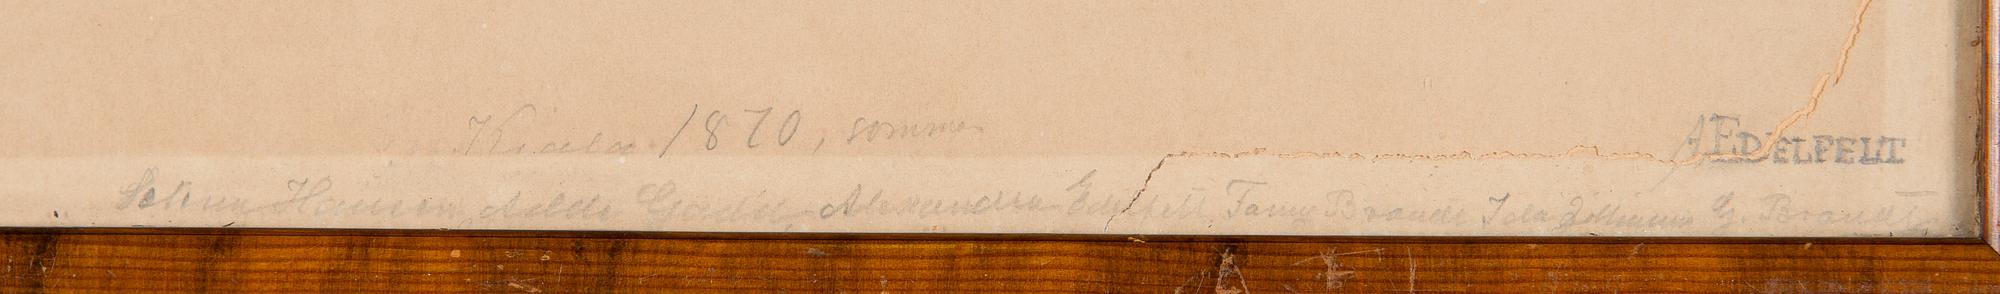 Kiala 1870, sommer
A EDELFELT
Selma Hausen Adde Gadd Alexandra Edelfelt Fanny Brandt Ida G. Brandt